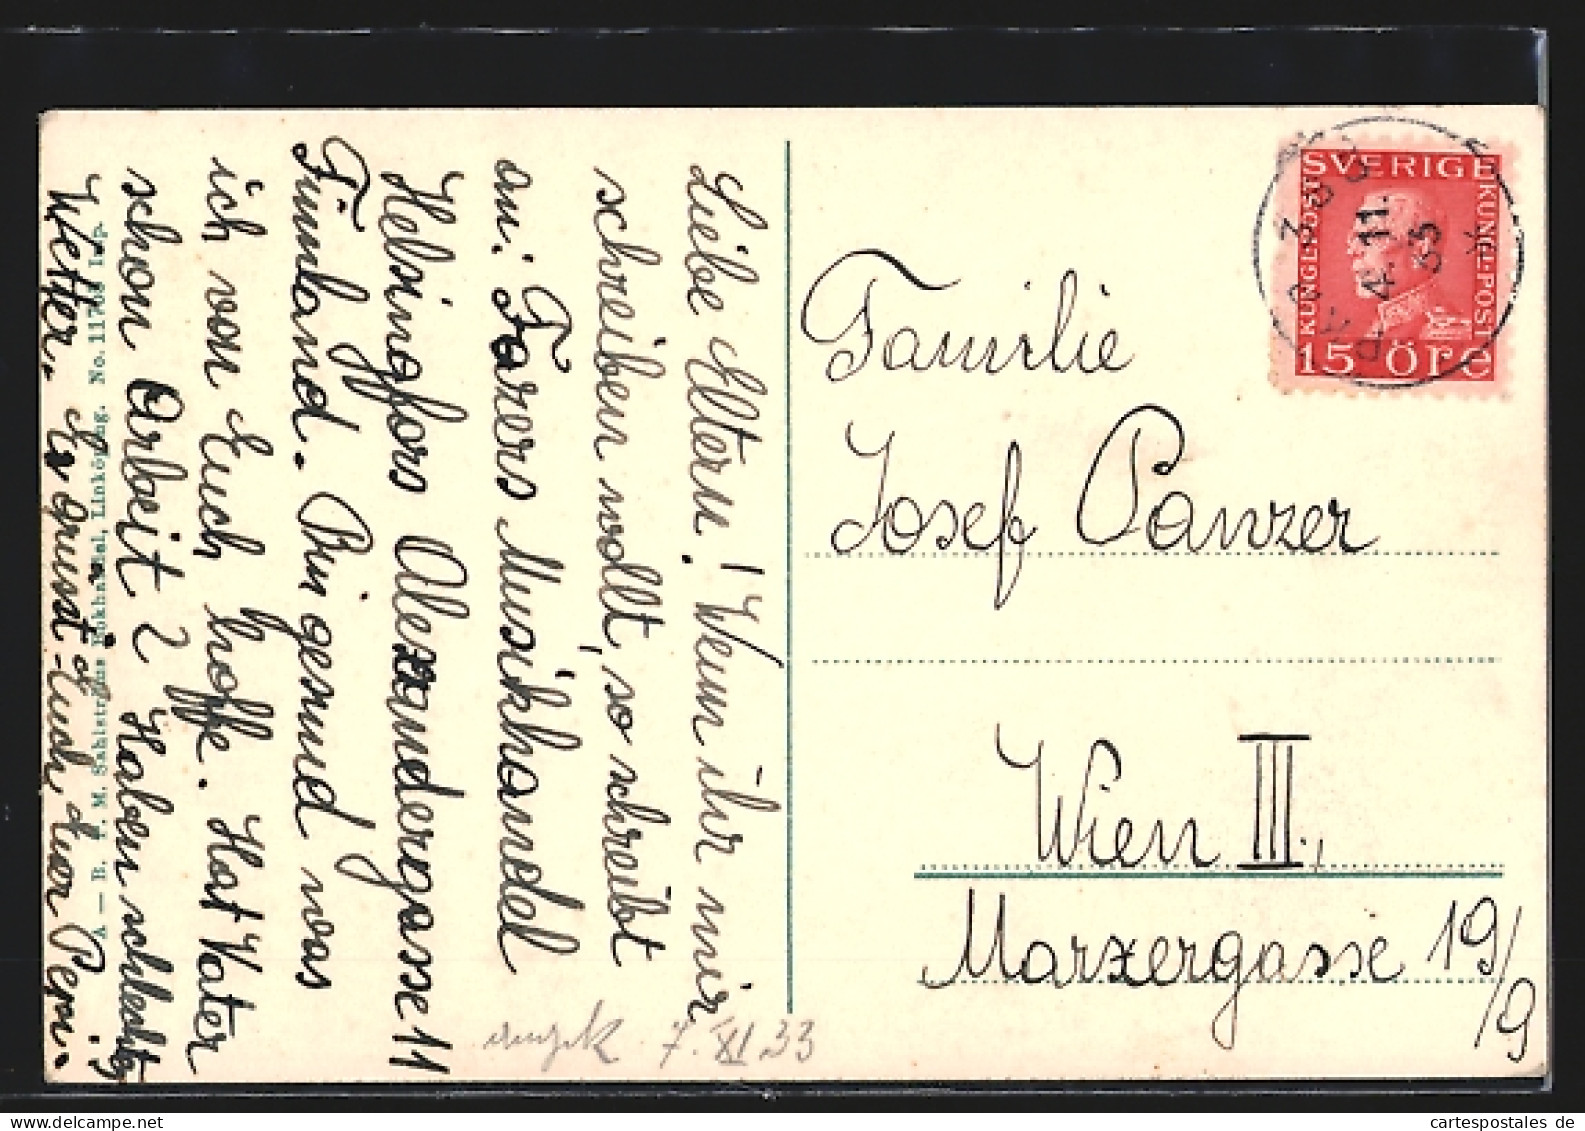 Liebe Eltern! Wenn ihr mir
schreiben wollt, so schreibt
an: Fazers Musikhandel
Helsingfors Alexandergasse 11
Finnland. Bin gesund was
ich von Euch hoffe. Hat Vater
schon Arbeit? Haben schlechtes
Wetter. Es grüsst Euch, Euer Pepi.
A.—B. F. M. Sahlströms Bokhandel, Linköping. No. 11768 Imp.
SVERIGE
KUNGLSPOST
KUNGL-POST
15 ÖRE
4. 11.
33
Familie
Josef Panzer
Wien III.,
Marxergasse 19/9
7. XI 33
cartespostales de